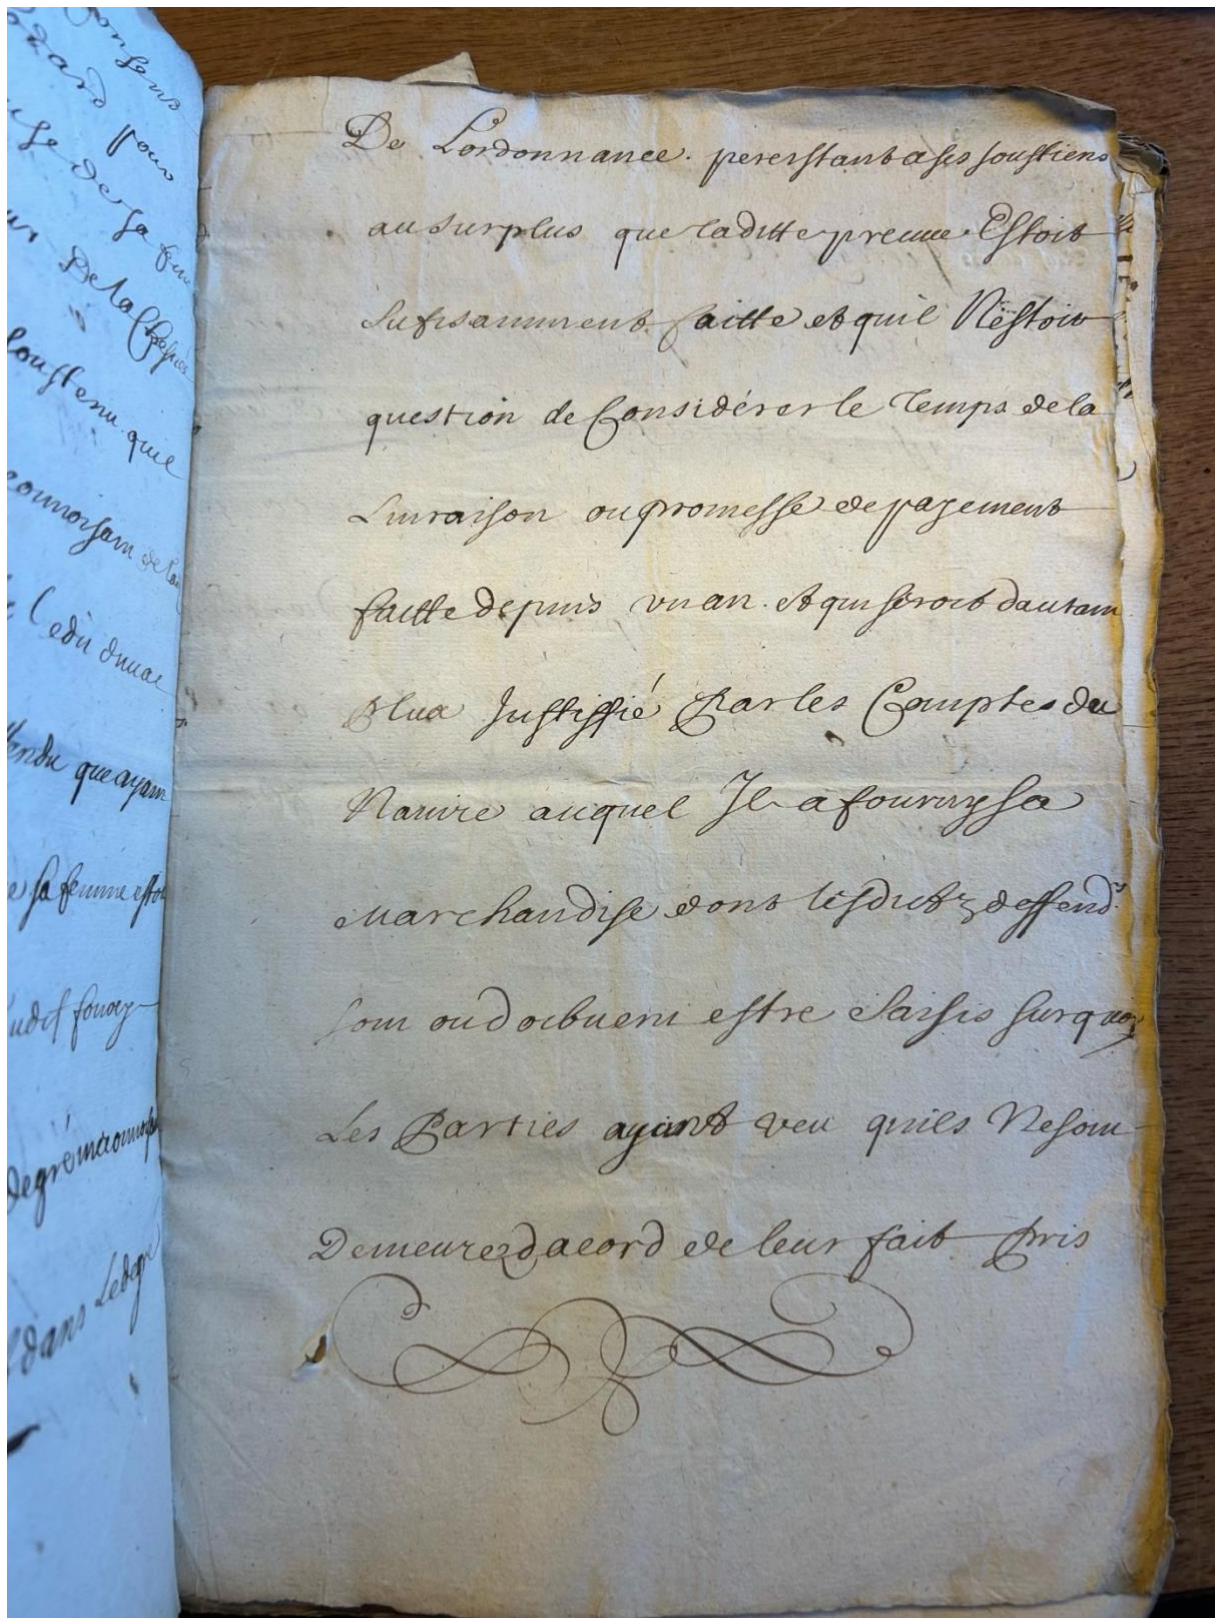 onsens
gard pour
se de sa fem
De la
soustenu quil
connoissan de la
Ledit
tendu que ayant
e sa femme esto
udit
Degré
dans Ledegré
De Lordonnance. perersstant a ses soustiens
au surplus que laditte preuue Estoit
sufisamment faitte et quil Nestoit
question de Considérer le temps de la
Liuraison ou promesse de payement
faitte depuis vn an. et qui seroit dautam
Plus Justiffié Par les Comptes du
Nauire auquel Il a fourny sa
Marchandise dont lesditz deffendrs
som ou doibuent estre saisis surquoy
Les Parties ayant veu quils Nesom
Demeurez dacord de leur fait Pris